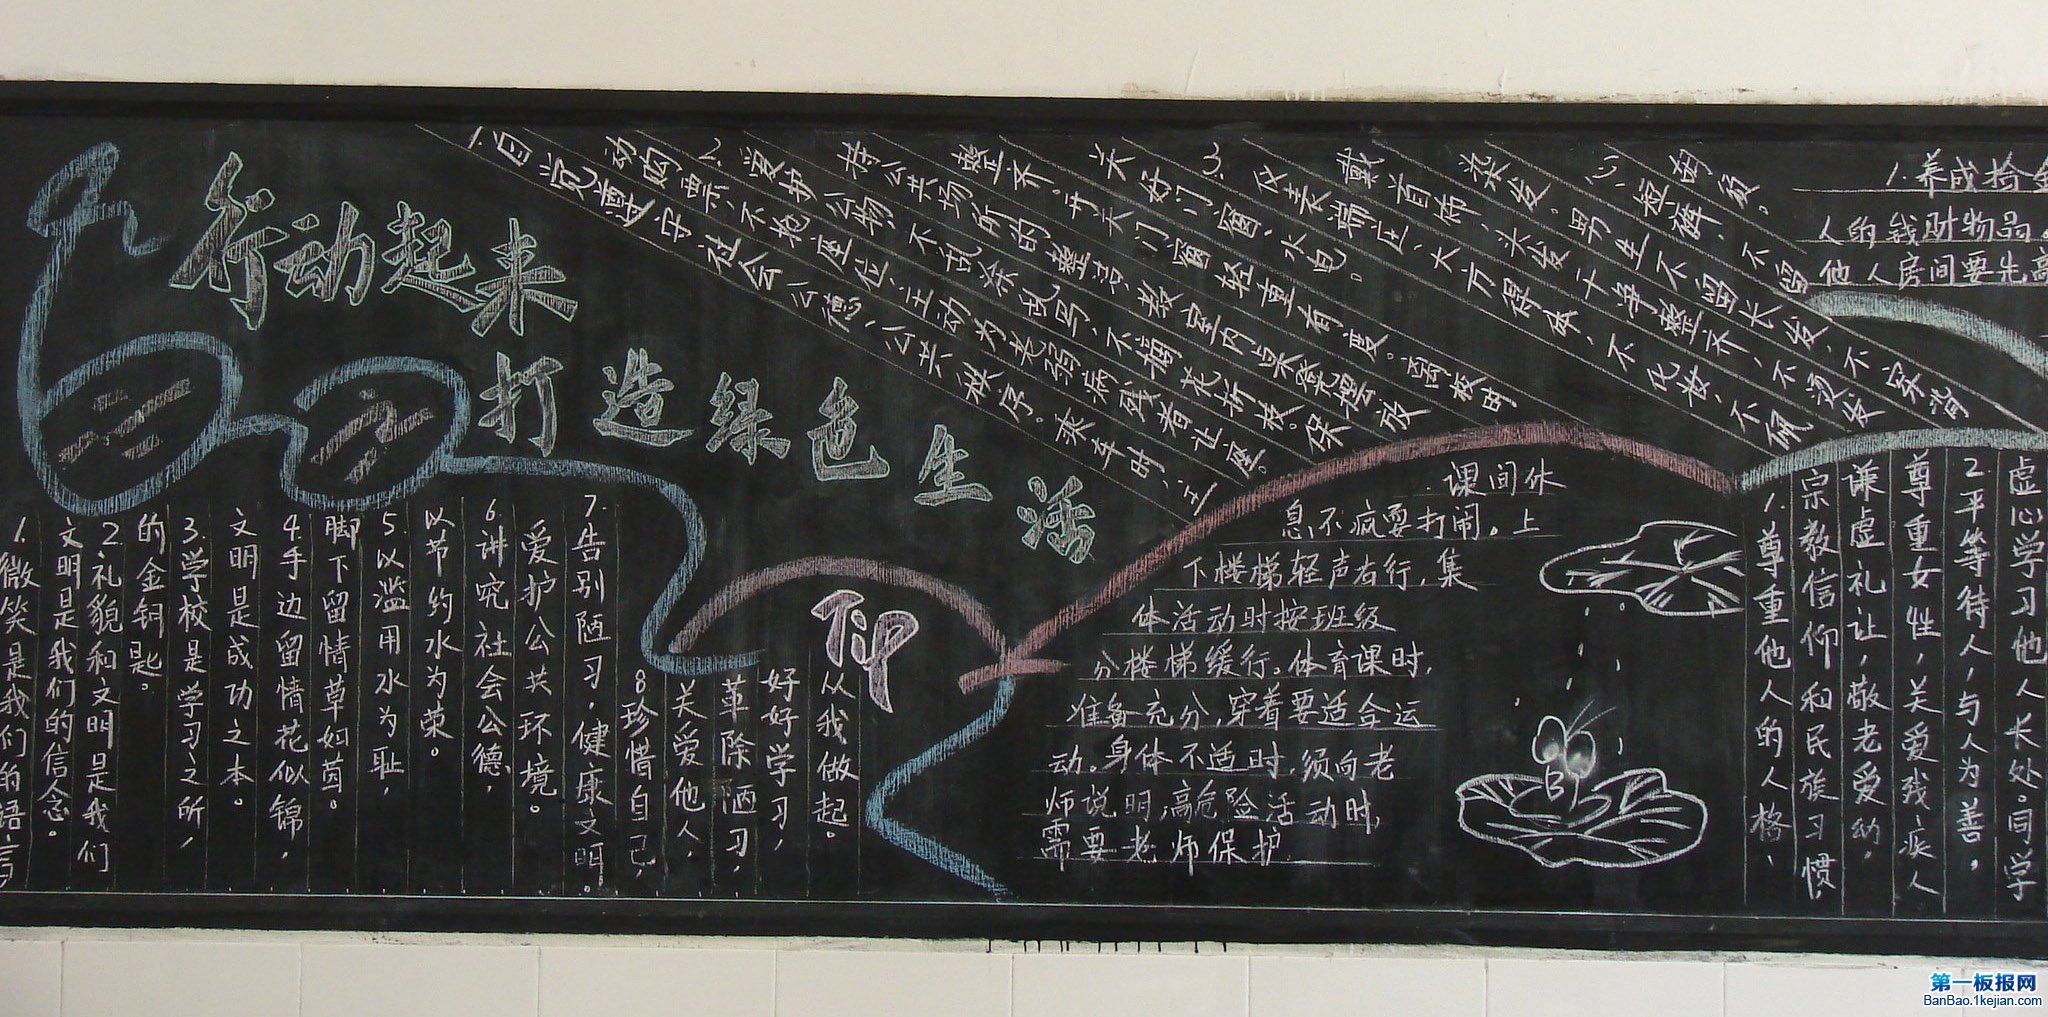 行动起来
打造绿色生活
1.微笑是我们的语言
文明是我们的信念。
2.礼貌和文明是我们
的金钥匙。
3.学校是学习之所，
文明是成功之本。
4.手边留情花似锦，
脚下留情草如茵。
5.以滥用水为耻，
以节约水为荣。
6.讲究社会公德，
爱护公共环境。
7.告别陋习，健康文明。
8.珍惜自己，
关爱他人，
革除陋习，
好好学习，
从我做起。
TiP
1.自觉遵守社会公德、公共秩序。乘车时，主
动购票，不抢座位，主动为老弱病残者让座。
2.爱护公物，不乱涂乱写，不摘花折枝。保
持公共场所的整洁，教室内桌凳摆放
整齐。开关门窗轻重有度。离校时
关好门窗、水电。
3.仪表端庄、大方得体，不化妆，不佩
戴首饰，头发干净整齐，不烫发
染发。男生不留长发，不穿背
心、短裤，不留
发。
课间休
息，不疯耍打闹。上
下楼梯轻声右行，集
体活动时按班级
分楼梯缓行。体育课时，
准备充分，穿着要适合运
动。身体不适时，须向老
师说明，高危险活动时，
需要老师保护
1.养成拾金
人的钱财物品。
他人房间要先高
1.尊重他人的人格、
宗教信仰和民族习惯
谦虚礼让，敬老爱幼，
尊重女性，关爱残疾人
2.平等待人，与人为善，
虚心学习他人长处。同学
第一板报网
BanBao.1kejian.com